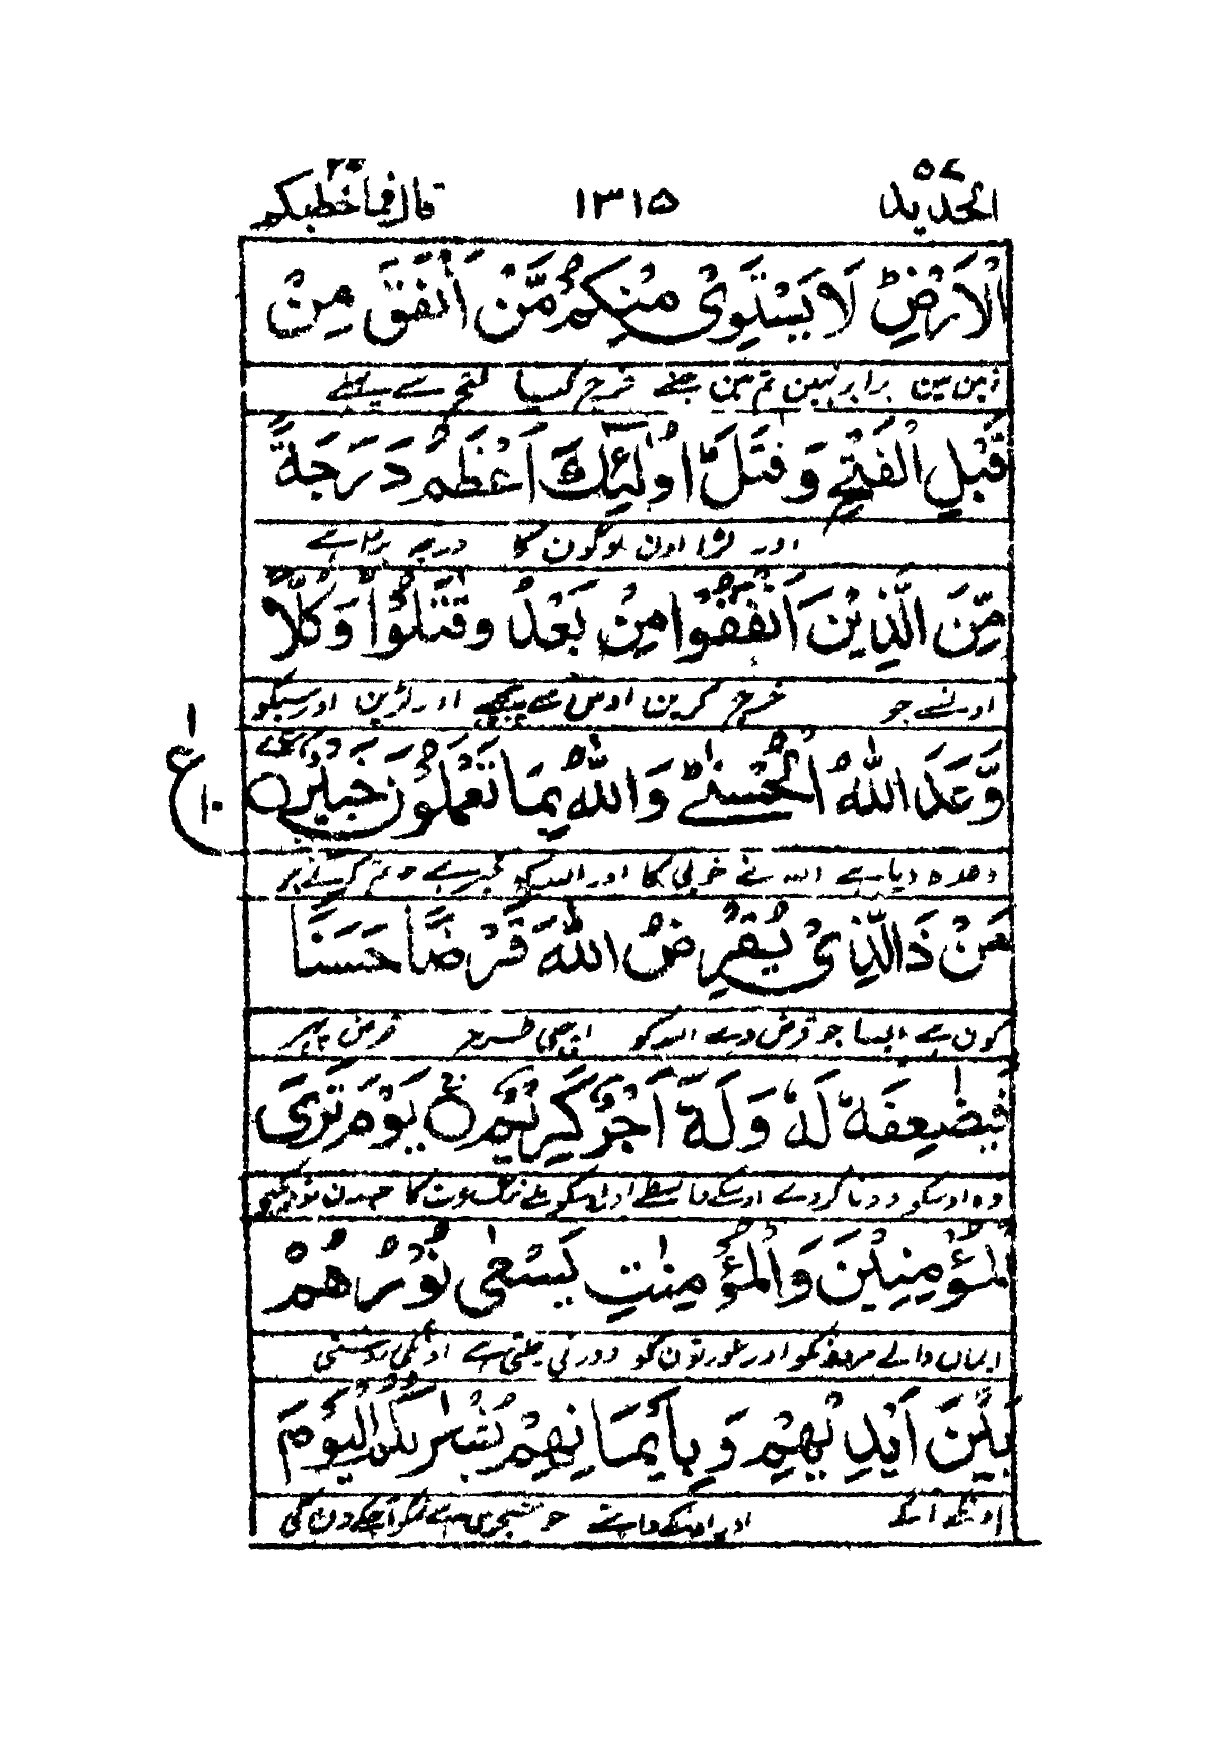 الحديد ٥٧ ١٣١٥ قال فما خطبكم ٢٧
الْاَرْضِ ؕ لَا يَسْتَوِىْ مِنْكُمْ مَّنْ اَنْفَقَ مِنْ
زمین مین برابر نہین تم مین جسنے خرچ کیا فتح سے پہلے
قَبْلِ الْفَتْحِ وَقٰتَلَ ؕ اُولٰٓئِكَ اَعْظَمُ دَرَجَةً
اور لڑا اون لوگون کا درجہ بڑا ہے
مِّنَ الَّذِيْنَ اَنْفَقُوْا مِنْ بَعْدُ وَقٰتَلُوْا ؕ وَكُلًّا
اونسے جو خرچ کرین اوس سے پیچھے اور لڑین اور سبکو
وَّعَدَ اللّٰهُ الْحُسْنٰى ؕ وَاللّٰهُ بِمَا تَعْمَلُوْنَ خَبِيْرٌ ○
ع ١ ١٠
وعدہ دیا ہے اللہ نے خوبی کا اور اللہ کو خبر ہے جو تم کرتے ہو
مَنْ ذَا الَّذِىْ يُقْرِضُ اللّٰهَ قَرْضًا حَسَنًا
کون ہے ایسا جو قرض دے اللہ کو اچھی طرح قرض پہر
فَيُضٰعِفَهٗ لَهٗ وَلَهٗٓ اَجْرٌ كَرِيْمٌ ○ يَوْمَ تَرَى
وہ اوسکو دونا کردے اوسکے واسطے اور اوسکو ملے نیگ عزت کا جسدن تو دیکھے
الْمُؤْمِنِيْنَ وَالْمُؤْمِنٰتِ يَسْعٰى نُوْرُهُمْ
ایمان والے مردونکو اور عورتون کو دوڑتی چلتی ہے اونکی روشنی
بَيْنَ اَيْدِيْهِمْ وَبِاَيْمَانِهِمْ بُشْرٰىكُمُ الْيَوْمَ
اونکے آگے اور اونکے داہنے خوشخبری ہے تمکو آجکے دن کی